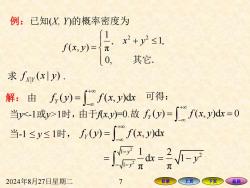 例：已知(X, Y)的概率密度为
f(x,y) = { 1/π, x² + y² ≤ 1,
0, 其它.
求 f_{X|Y}(x | y) .
解： 由 f_Y(y) = ∫_{-∞}^{+∞} f(x, y)dx 可得：
当y<-1或y>1时，由于f(x,y)=0. 故 f_Y(y) = ∫_{-∞}^{+∞} f(x, y)dx = 0
当-1 ≤ y ≤ 1时， f_Y(y) = ∫_{-∞}^{+∞} f(x, y)dx
= ∫_{-√(1-y²)}^{√(1-y²)} 1/π dx = 2/π √(1-y²)
2024年8月27日星期二 7